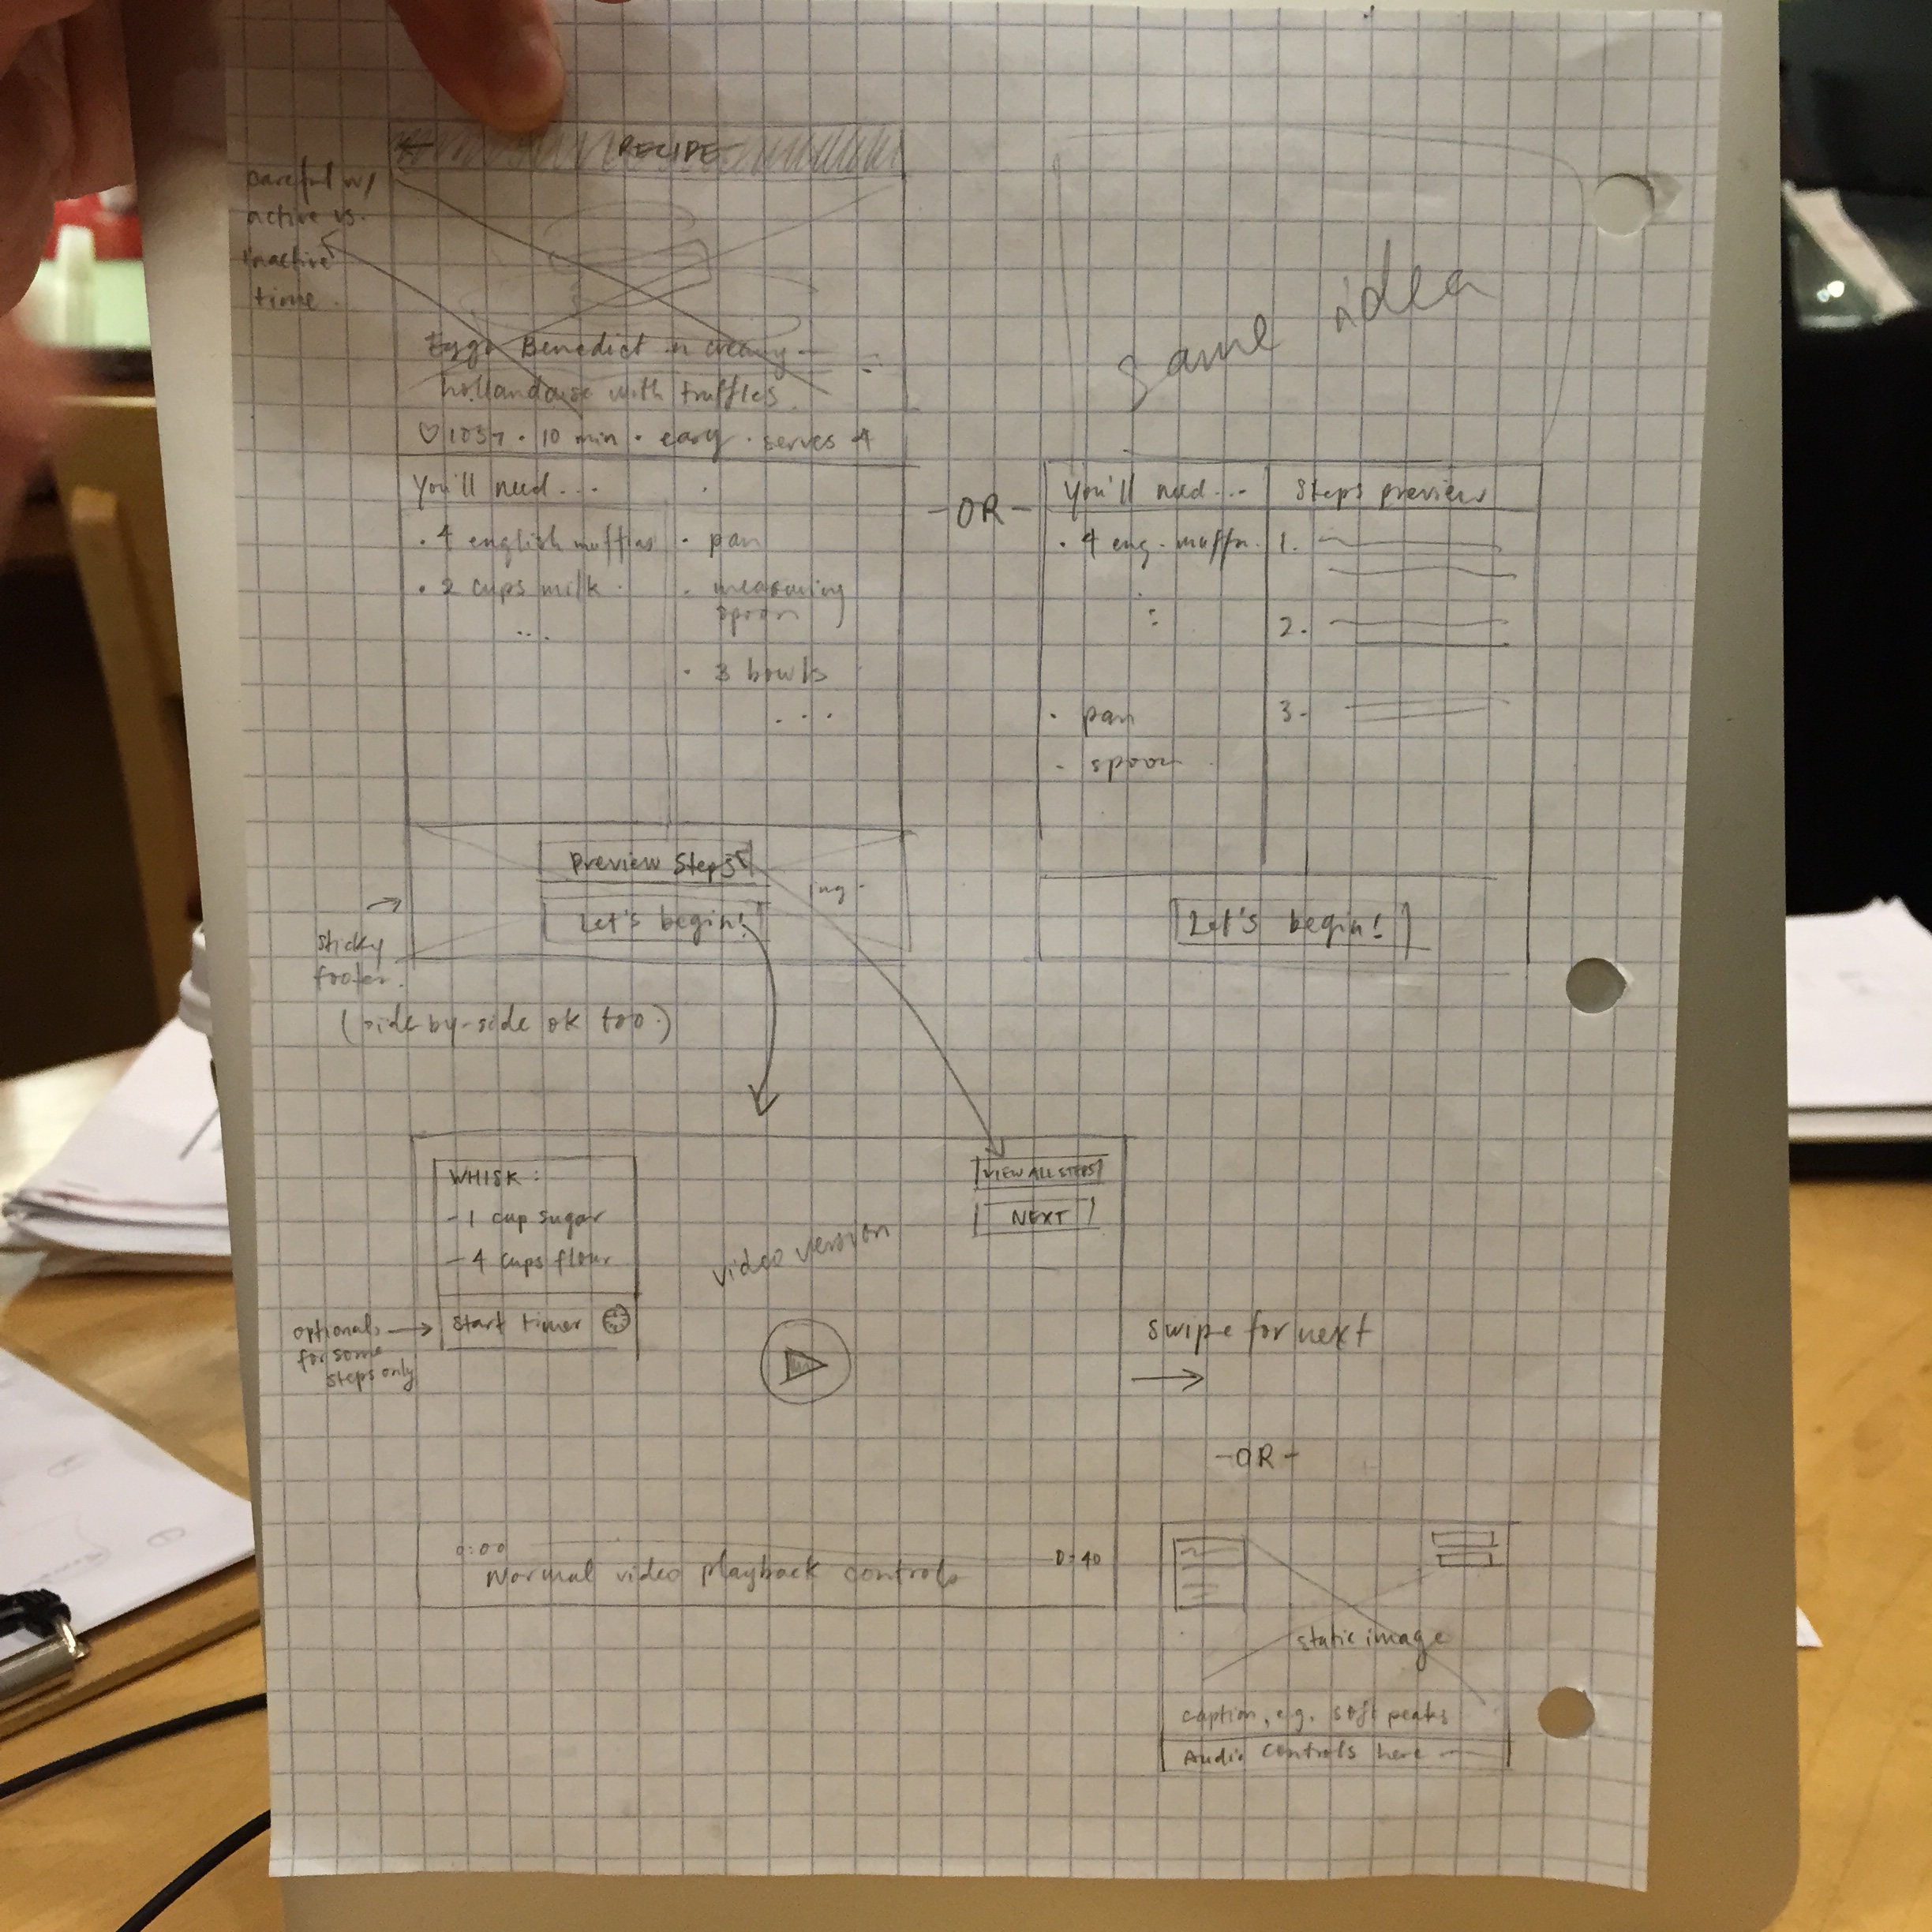 RECIPE
careful w/
active vs.
inactive
time.
Eggs Benedict in creamy
hollandaise with truffles
♡ 1037 · 10 min · easy · serves 4
You'll need...
· 4 english muffins
· 2 cups milk
...
· pan
· measuring
spoon
· 3 bowls
...
Preview Steps
Let's begin!
ing.
sticky
footer.
(side-by-side ok too)
-OR-
same idea
You'll need...
Steps preview
· 4 eng. muffn.
· pan
- spoon
1.
2.
3.
Let's begin!
WHISK:
- 1 cup sugar
- 4 cups flour
Start timer
optional,
for some
steps only
video version
VIEW ALL STEPS
NEXT
0:00
0:40
Normal video playback controls
swipe for next
-OR-
static image
caption, e.g. soft peaks
Audio controls here